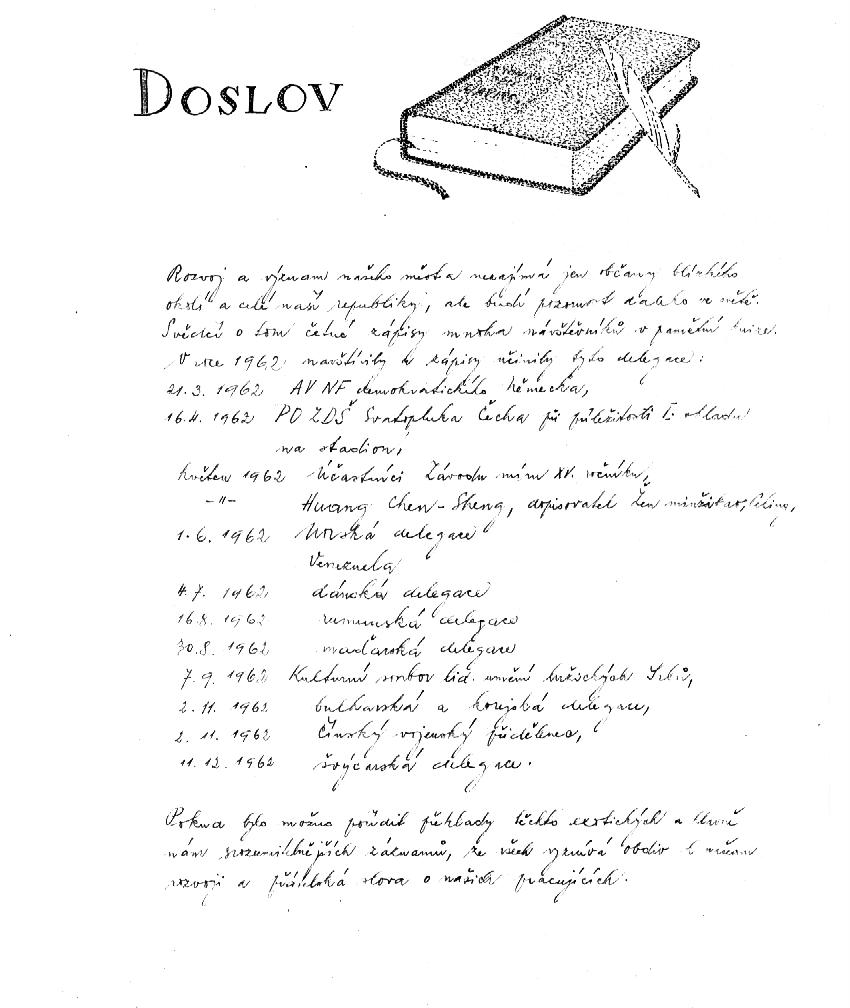 DOSLOV
Rozvoj a význam našeho města nezajímá jen občany blízkého
okolí a celé naší republiky, ale budí pozornost daleko ve světě.
Svědčí o tom četné zápisy mnoha návštěvníků v pamětní knize.
V roce 1962 navštívily a zápisy učinily tyto delegace:
21.3. 1962 AV NF demokratického Německa,
16.4. 1962 PO ZDŠ Svatopluka Čecha při příležitosti I. 
na stadion,
květen 1962 Účastníci Závodu míru XV. ročníku,
-"- Huang Chen-Sheng, dopisovatel Žen Peking,
1.6. 1962 delegace
Venezuela
4.7. 1962 dánská delegace
16.8. 1962 rumunská delegace
30.8. 1962 maďarská delegace
7.9. 1962 Kulturní soubor lid. umění lužických Srbů,
2.11. 1962 bulharská a korejská delegace,
2.11. 1962 čínský vojenský přidělenec,
11.12. 1962 švýcarská delegace.
Pokud bylo možno pořídit překlady těchto exotických a 
nám srozumitelnějších záznamů, ze všech vyznívá obdiv k našemu
rozvoji a přátelská slova o našich pracujících.